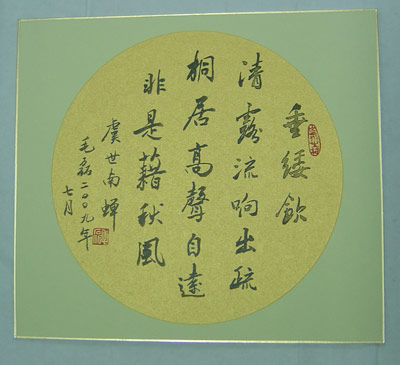 垂緌飲
清露流响出疏
桐居高聲自遠
非是藉秋風
虞世南蟬
毛磊二〇〇九年
七月